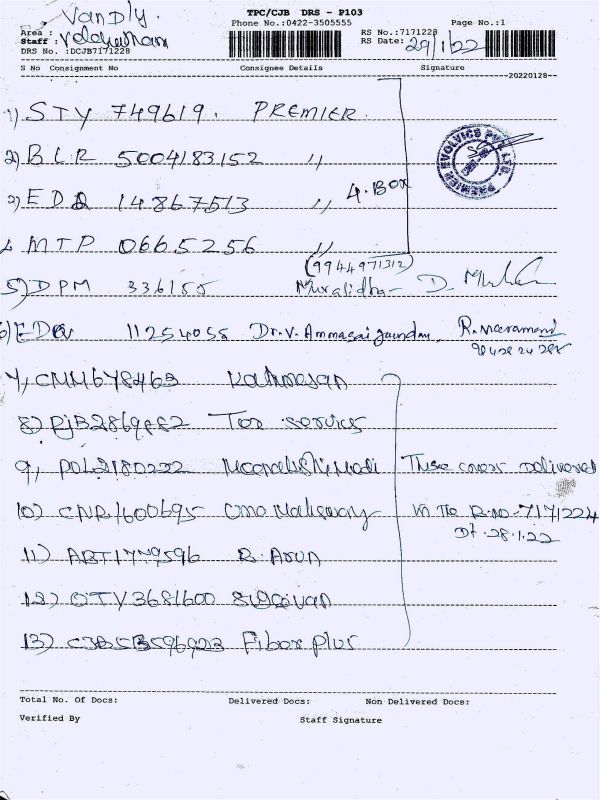 VANDLY.
TPC/CJB DRS - P103
Phone No.:0422-3505555
Page No.:1
Area :
Staff :
RS No.:7171228
RS Date: 29/1/22
DRS No. :DCJB7171228
S No Consignment No Consignee Details Signature
20220128
1) STY 749619. PREMIER.
2) BLR 5004183152 "
3) EDQ 14867513 " 4. BOX
PREMIER EVOLVICS PVT. LTD.
4. MTP 0665256 "
(9944971312)
5) DPM 336155 Muralidhar D.
6) 11254055 Dr. V. Ammasai
7, CMM678463
8) 2869882 service
9, POL2180222
These cover delivered
10) CNR1600695
in the R.no-7171224
Dt. 28.1.22
11) ABT1779596 B. Arun
12) OTY3681600
13) Fiber plus
Total No. Of Docs: Delivered Docs: Non Delivered Docs:
Verified By Staff Signature